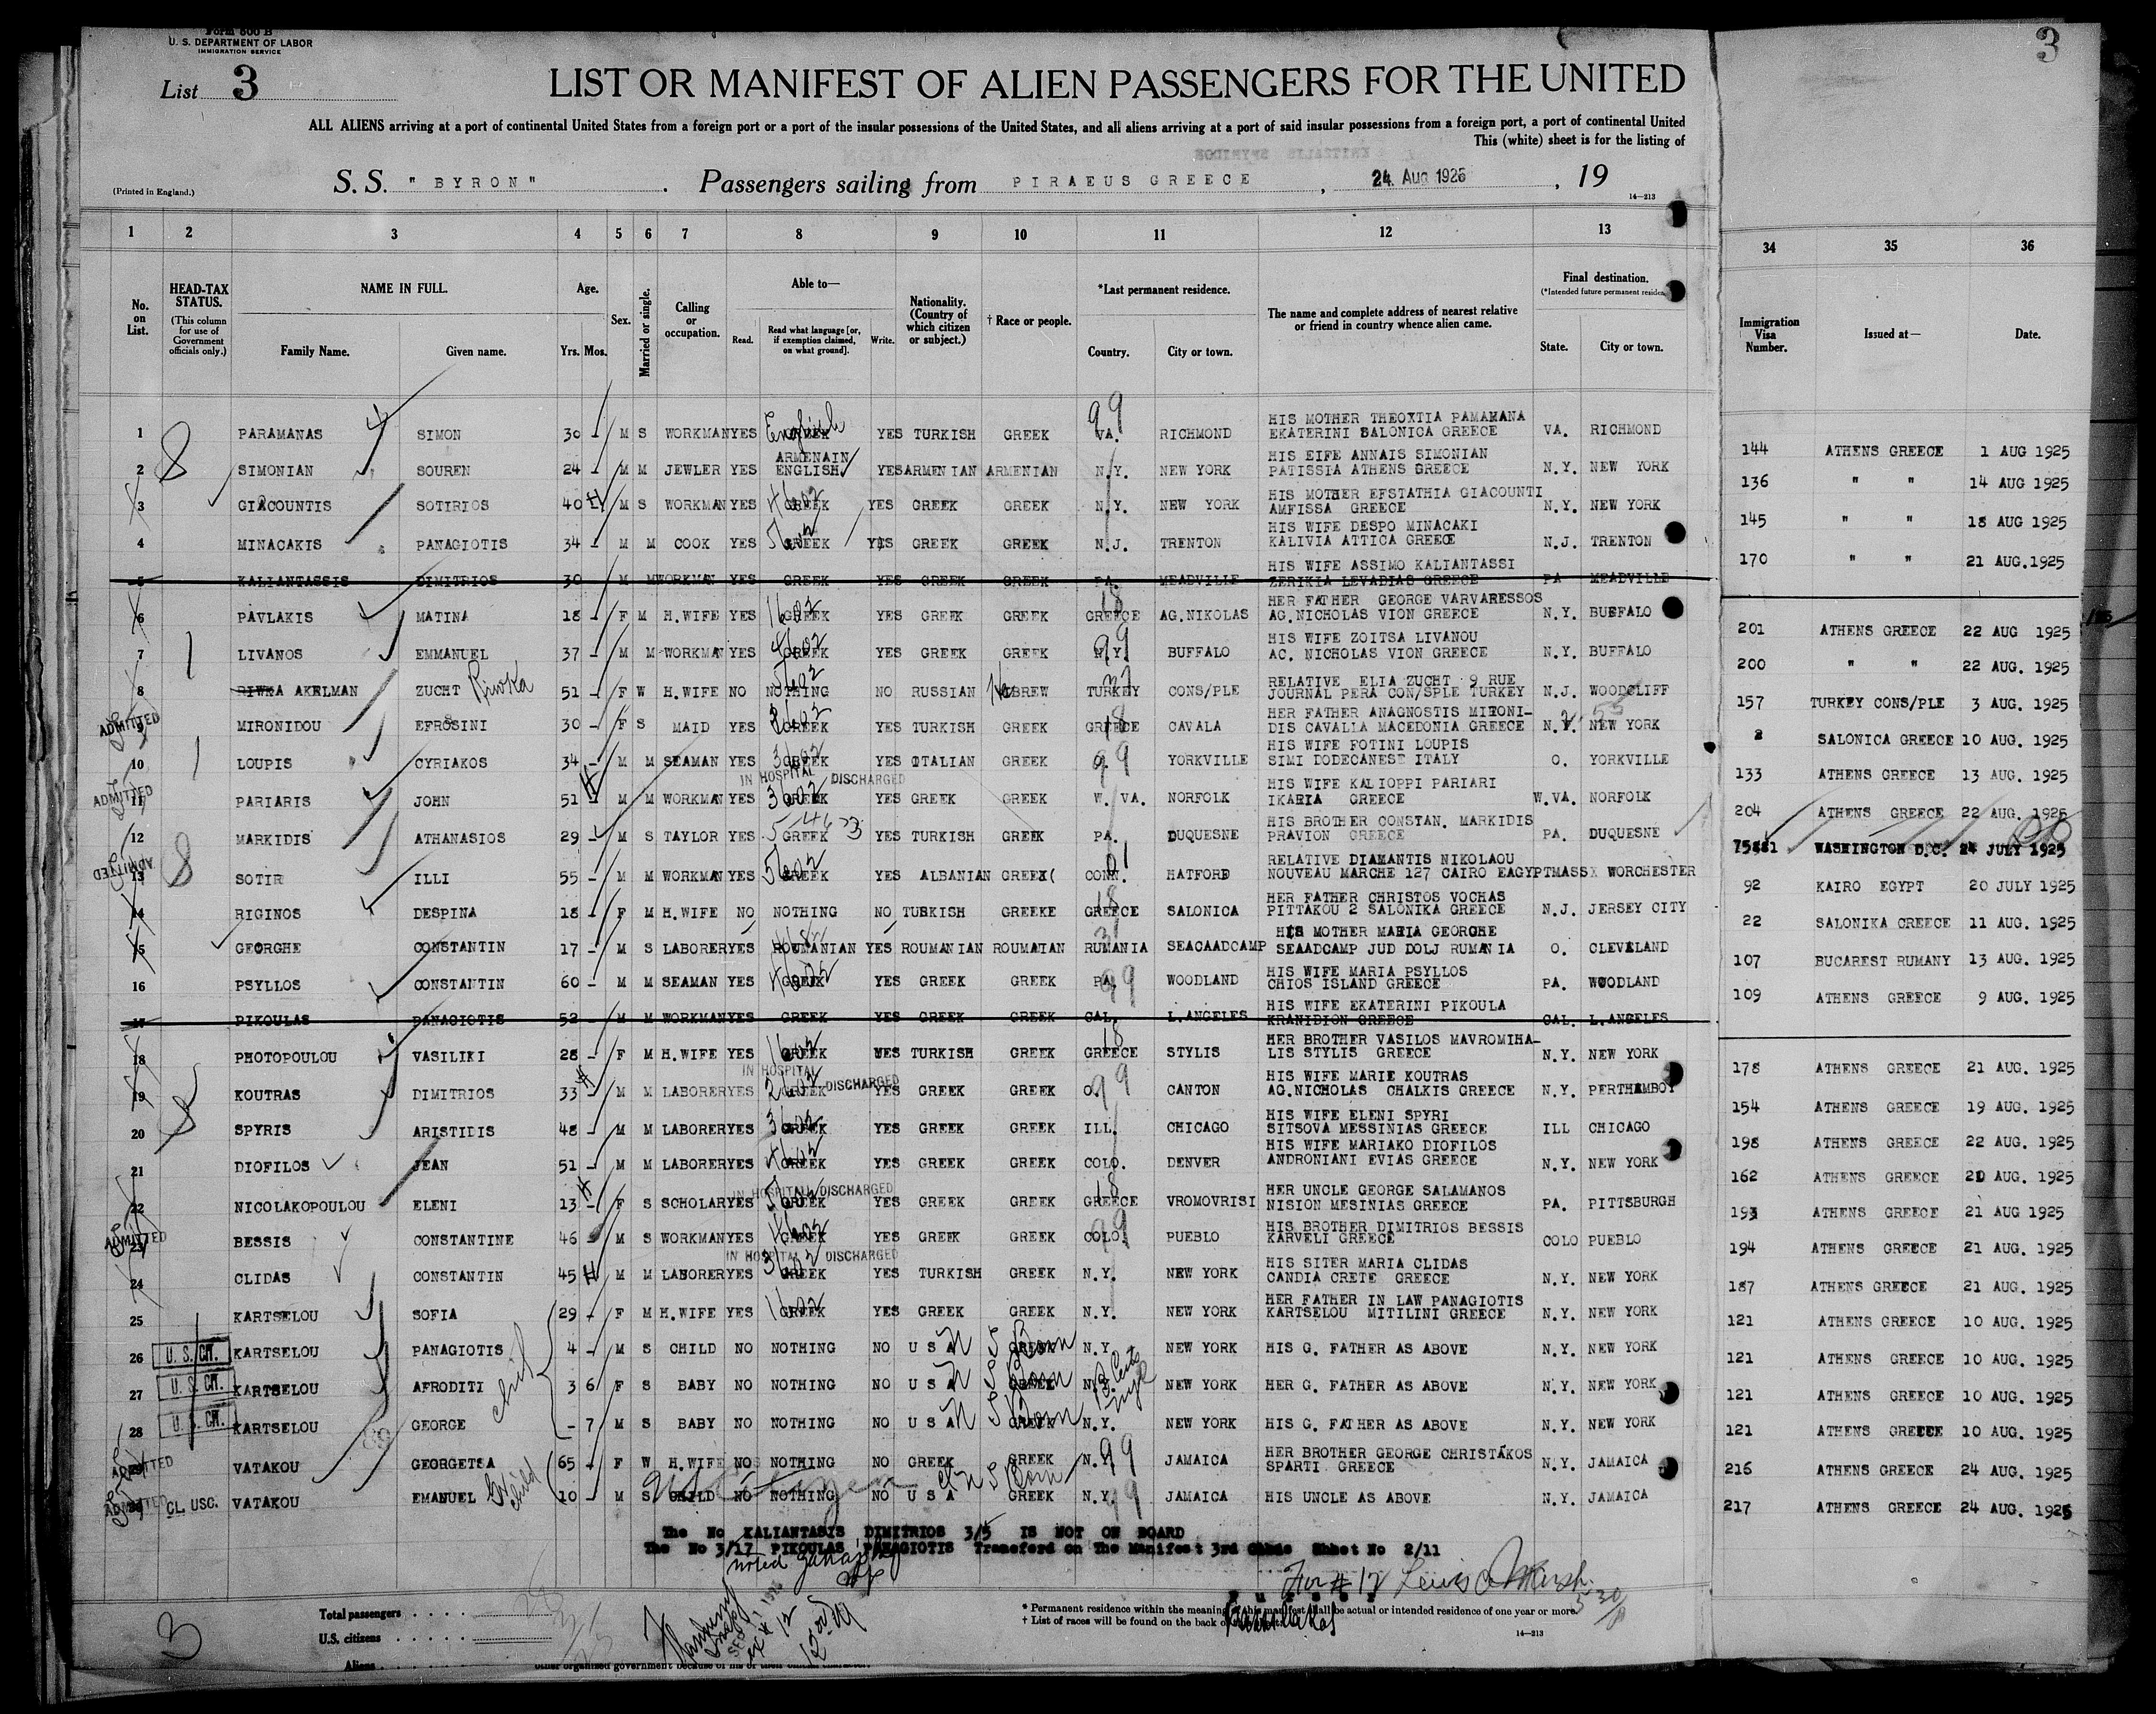 Form 500 B
U. S. DEPARTMENT OF LABOR
IMMIGRATION SERVICE
3
List 3
LIST OR MANIFEST OF ALIEN PASSENGERS FOR THE UNITED
ALL ALIENS arriving at a port of continental United States from a foreign port or a port of the insular possessions of the United States, and all aliens arriving at a port of said insular possessions from a foreign port, a port of continental United
This (white) sheet is for the listing of
(Printed in England.)
S. S. " BYRON " . Passengers sailing from PIRAEUS GREECE , 24. Aug 1925 , 19
14—213
1 2 3 4 5 6 7 8 9 10 11 12 13 34 35 36
No. on List.
HEAD-TAX STATUS.
(This column for use of Government officials only.)
NAME IN FULL.
Family Name. Given name.
Age.
Yrs. Mos.
Sex.
Married or single.
Calling or occupation.
Able to—
Read. Read what language [or, if exemption claimed, on what ground]. Write.
Nationality. (Country of which citizen or subject.)
† Race or people.
*Last permanent residence.
Country. City or town.
The name and complete address of nearest relative or friend in country whence alien came.
Final destination.
(*Intended future permanent residence
State. City or town.
Immigration Visa Number.
Issued at—
Date.
1 PARAMANAS SIMON 30 - M S WORKMAN YES English YES TURKISH GREEK VA. RICHMOND HIS MOTHER THEOXTIA PAMAMANA EKATERINI SALONICA GREECE VA. RICHMOND 144 ATHENS GREECE 1 AUG 1925
2 SIMONIAN SOUREN 24 - M M JEWLER YES ARMENAIN ENGLISH YES ARMENIAN ARMENIAN N.Y. NEW YORK HIS EIFE ANNAIS SIMONIAN PATISSIA ATHENS GREECE N.Y. NEW YORK 136 " " 14 AUG 1925
3 GIACOUNTIS SOTIRIOS 40 M S WORKMAN YES GREEK YES GREEK GREEK N.Y. NEW YORK HIS MOTHER EFSTATHIA GIACOUNTI AMFISSA GREECE N.Y. NEW YORK 145 " " 18 AUG 1925
4 MINACAKIS PANAGIOTIS 34 - M M COOK YES GREEK YES GREEK GREEK N.J. TRENTON HIS WIFE DESPO MINACAKI KALIVIA ATTICA GREECE N.J. TRENTON 170 " " 21 AUG.1925
5 KALIANTASSIS DIMITRIOS 30 - M M WORKMAN YES GREEK YES GREEK GREEK PA. MEADVILLE HIS WIFE ASSIMO KALIANTASSI ZERIKIA LEVADIAS GREECE PA MEADVILLE
6 PAVLAKIS MATINA 18 - F M H.WIFE YES GREEK YES GREEK GREEK GREECE AG.NIKOLAS HER FATHER GEORGE VARVARESSOS AG.NICHOLAS VION GREECE N.Y. BUFFALO 201 ATHENS GREECE 22 AUG 1925
7 LIVANOS EMMANUEL 37 - M M WORKMAN YES GREEK YES GREEK GREEK N.Y. BUFFALO HIS WIFE ZOITSA LIVANOU AC. NICHOLAS VION GREECE N.Y. BUFFALO 200 " " 22 AUG. 1925
8 RIWKA AKELMAN ZUCHT Riwka 51 - F W H.WIFE NO NOTHING NO RUSSIAN HEBREW TURKEY CONS/PLE RELATIVE ELIA ZUCHT 9 RUE JOURNAL PERA CON/SPLE TURKEY N.J. WOODCLIFF 157 TURKEY CONS/PLE 3 AUG. 1925
ADMITTED
9 MIRONIDOU EFROSINI 30 - F S MAID YES GREEK YES TURKISH GREEK GREECE CAVALA HER FATHER ANAGNOSTIS MIRONI- DIS CAVALLA MACEDONIA GREECE N.Y. NEW YORK 2 SALONICA GREECE 10 AUG. 1925
10 LOUPIS CYRIAKOS 34 - M M SEAMAN YES GREEK YES ITALIAN GREEK O. YORKVILLE HIS WIFE FOTINI LOUPIS SIMI DODECANESE ITALY O. YORKVILLE 133 ATHENS GREECE 13 AUG. 1925
IN HOSPITAL DISCHARGED
ADMITTED
11 PARIARIS JOHN 51 - M M WORKMAN YES GREEK YES GREEK GREEK W. VA. NORFOLK HIS WIFE KALIOPPI PARIARI IKARIA GREECE W.VA. NORFOLK 204 ATHENS GREECE 22 AUG. 1925
12 MARKIDIS ATHANASIOS 29 - M S TAYLOR YES GREEK YES TURKISH GREEK PA. DUQUESNE HIS BROTHER CONSTAN. MARKIDIS PRAVION GREECE PA. DUQUESNE WASHINGTON D.C. 24 JULY 1925
ADMITTED
13 SOTIR ILLI 55 - M M WORKMAN YES GREEK YES ALBANIAN GREEK CONN. HATFORD RELATIVE DIAMANTIS NIKOLAOU NOUVEAU MARCHE 127 CAIRO EAGYPT MASS WORCHESTER 92 KAIRO EGYPT 20 JULY 1925
14 RIGINOS DESPINA 18 - F M H.WIFE NO NOTHING NO TURKISH GREEKE GREECE SALONICA HER FATHER CHRISTOS VOCHAS PITTAKOU 2 SALONIKA GREECE N.J. JERSEY CITY 22 SALONIKA GREECE 11 AUG. 1925
15 GEORGHE CONSTANTIN 17 - M S LABORER YES ROUMANIAN YES ROUMANIAN ROUMATAN RUMANIA SEACAADCAMP HIS MOTHER MARIA GEORGHE SEAADCAMP JUD DOLJ RUMANIA O. CLEVELAND 107 BUCAREST RUMANY 13 AUG. 1925
16 PSYLLOS CONSTANTIN 60 - M M SEAMAN YES GREEK YES GREEK GREEK PA. WOODLAND HIS WIFE MARIA PSYLLOS CHIOS ISLAND GREECE PA. WOODLAND 109 ATHENS GREECE 9 AUG. 1925
17 PIKOULAS PANAGIOTIS 52 - M M WORKMAN YES GREEK YES GREEK GREEK CAL. L.ANGELES HIS WIFE EKATERINI PIKOULA KRANIDION GREECE CAL. L.ANGELES
18 PHOTOPOULOU VASILIKI 28 - F M H.WIFE YES GREEK YES TURKISH GREEK GREECE STYLIS HER BROTHER VASILOS MAVROMIHA- LIS STYLIS GREECE N.Y. NEW YORK 178 ATHENS GREECE 21 AUG. 1925
IN HOSPITAL DISCHARGED
19 KOUTRAS DIMITRIOS 33 - M M LABORER YES GREEK YES GREEK GREEK O. CANTON HIS WIFE MARIE KOUTRAS AG.NICHOLAS CHALKIS GREECE N.Y. PERTHAMBOY 154 ATHENS GREECE 19 AUG. 1925
20 SPYRIS ARISTIDIS 48 - M M LABORER YES GREEK YES GREEK GREEK ILL. CHICAGO HIS WIFE ELENI SPYRI SITSOVA MESSINIAS GREECE ILL CHICAGO 198 ATHENS GREECE 22 AUG. 1925
21 DIOFILOS JEAN 51 - M M LABORER YES GREEK YES GREEK GREEK COLO. DENVER HIS WIFE MARIAKO DIOFILOS ANDRONIANI EVIAS GREECE N.Y. NEW YORK 162 ATHENS GREECE 20 AUG. 1925
IN HOSPITAL DISCHARGED
22 NICOLAKOPOULOU ELENI 13 - F S SCHOLAR YES GREEK YES GREEK GREEK GREECE VROMOVRISI HER UNCLE GEORGE SALAMANOS NISION MESINIAS GREECE PA. PITTSBURGH 193 ATHENS GREECE 21 AUG 1925
ADMITTED
23 BESSIS CONSTANTINE 46 - M S WORKMAN YES GREEK YES GREEK GREEK COLO. PUEBLO HIS BROTHER DIMITRIOS BESSIS KARVELI GREECE COLO PUEBLO 194 ATHENS GREECE 21 AUG. 1925
IN HOSPITAL DISCHARGED
24 CLIDAS CONSTANTIN 45 M M LABORER YES GREEK YES TURKISH GREEK N.Y. NEW YORK HIS SITER MARIA CLIDAS CANDIA CRETE GREECE N.Y. NEW YORK 187 ATHENS GREECE 21 AUG. 1925
25 KARTSELOU SOFIA 29 - F M H.WIFE YES GREEK YES GREEK GREEK N.Y. NEW YORK HER FATHER IN LAW PANAGIOTIS KARTSELOU MITILINI GREECE N.Y. NEW YORK 121 ATHENS GREECE 10 AUG. 1925
26 U. S. CIT. KARTSELOU PANAGIOTIS 4 - M S CHILD NO NOTHING NO U S A GREEK N.Y. NEW YORK HIS G. FATHER AS ABOVE N.Y. NEW YORK 121 ATHENS GREECE 10 AUG. 1925
27 U. S. CIT. KARTSELOU AFRODITI 3 6 F S BABY NO NOTHING NO U S A GREEK N.Y. NEW YORK HER G. FATHER AS ABOVE N.Y. NEW YORK 121 ATHENS GREECE 10 AUG. 1925
28 U. S. CIT. KARTSELOU GEORGE - 7 M S BABY NO NOTHING NO U S A GREEK N.Y. NEW YORK HIS G. FATHER AS ABOVE N.Y. NEW YORK 121 ATHENS GREECE 10 AUG. 1925
ADMITTED
29 VATAKOU GEORGETSA 65 - F W H.WIFE NO NOTHING NO GREEK GREEK N.Y. JAMAICA HER BROTHER GEORGE CHRISTAKOS SPARTI GREECE N.Y. JAMAICA 216 ATHENS GREECE 24 AUG. 1925
ADMITTED
30 CL. USC. VATAKOU EMANUEL 10 - M S CHILD NO NOTHING NO U S A GREEK N.Y. JAMAICA HIS UNCLE AS ABOVE N.Y. JAMAICA 217 ATHENS GREECE 24 AUG. 1925
The No KALIANTASIS DIMITRIOS 3/5 IS NOT ON BOARD
The No 3/17 PIKOULAS PANAGIOTIS Transferd on The Manifest 3rd Sheet No 2/11
For # 12
3
Total passengers
U.S. citizens
Aliens
* Permanent residence within the meaning of this manifest shall be actual or intended residence of one year or more.
† List of races will be found on the back of
14—213